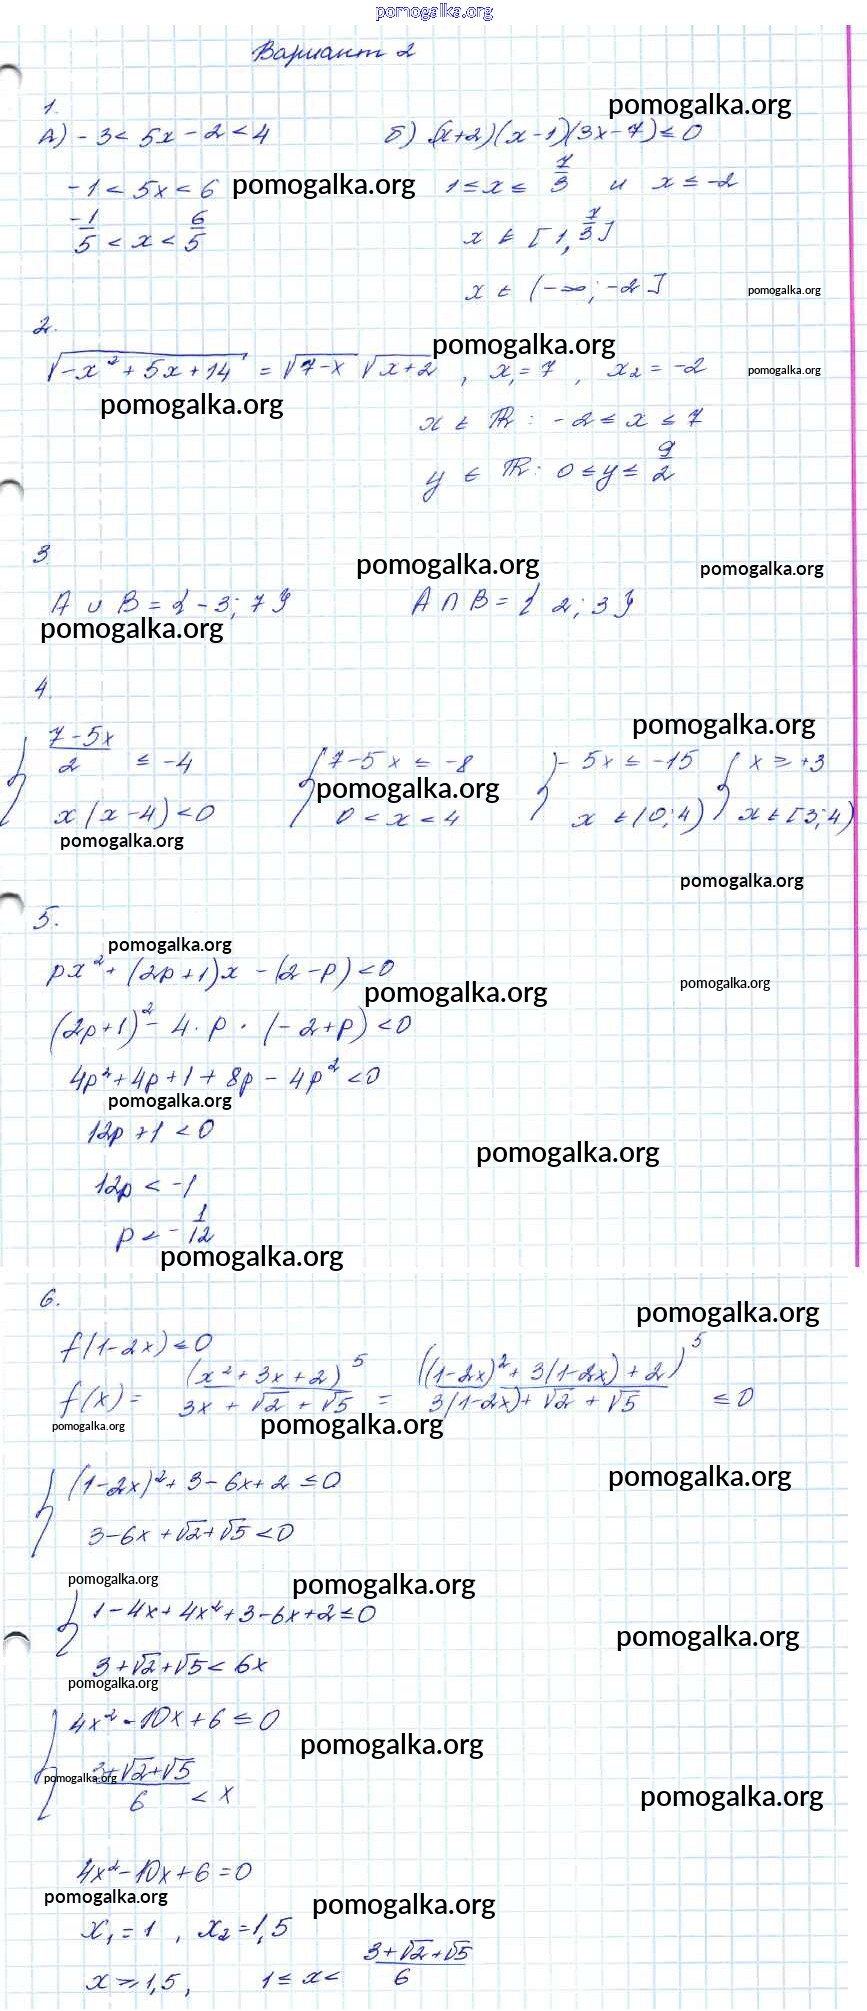 pomogalka.org
Вариант 2
1.
pomogalka.org
А) -3 < 5x - 2 < 4 б) (x+2)(x-1)(3x-7) ≤ 0
-1 < 5x < 6 pomogalka.org 1 ≤ x ≤ 7/3 и x ≤ -2
-1/5 < x < 6/5 x ∈ [1, 7/3]
x ∈ (-∞; -2] pomogalka.org
2.
pomogalka.org
√(-x² + 5x + 14) = √(7-x) √(x+2) , x₁ = 7 , x₂ = -2 pomogalka.org
pomogalka.org
x ∈ ℝ : -2 ≤ x ≤ 7
y ∈ ℝ : 0 ≤ y ≤ 9/2
3
pomogalka.org pomogalka.org
A ∪ B = {-3; 7} A ∩ B = {2; 3}
pomogalka.org
4.
pomogalka.org
{ (7-5x)/2 ≤ -4 { 7-5x ≤ -8 } -5x ≤ -15 { x ≥ +3
pomogalka.org
x(x-4) < 0 0 < x < 4 x ∈ (0; 4) x ∈ [3; 4)
pomogalka.org
pomogalka.org
5.
pomogalka.org
px² + (2p+1)x - (2-p) < 0
pomogalka.org pomogalka.org
(2p+1)² - 4 · p · (-2+p) < 0
4p² + 4p + 1 + 8p - 4p² < 0
pomogalka.org
12p + 1 < 0
pomogalka.org
12p < -1
p < -1/12
pomogalka.org
6.
pomogalka.org
f(1-2x) ≤ 0
f(x) = (x² + 3x + 2)⁵/(3x + √2 + √5) = ((1-2x)² + 3(1-2x) + 2)⁵/(3(1-2x) + √2 + √5) ≤ 0
pomogalka.org pomogalka.org
{ (1-2x)² + 3 - 6x + 2 ≤ 0 pomogalka.org
3 - 6x + √2 + √5 < 0
pomogalka.org pomogalka.org
{ 1 - 4x + 4x² + 3 - 6x + 2 ≤ 0
pomogalka.org
3 + √2 + √5 < 6x
pomogalka.org
{ 4x² - 10x + 6 ≤ 0
pomogalka.org
(3 + √2 + √5)/6 < x
pomogalka.org
pomogalka.org
4x² - 10x + 6 = 0
pomogalka.org pomogalka.org
x₁ = 1 , x₂ = 1,5
x ≥ 1,5 , 1 ≤ x < (3 + √2 + √5)/6